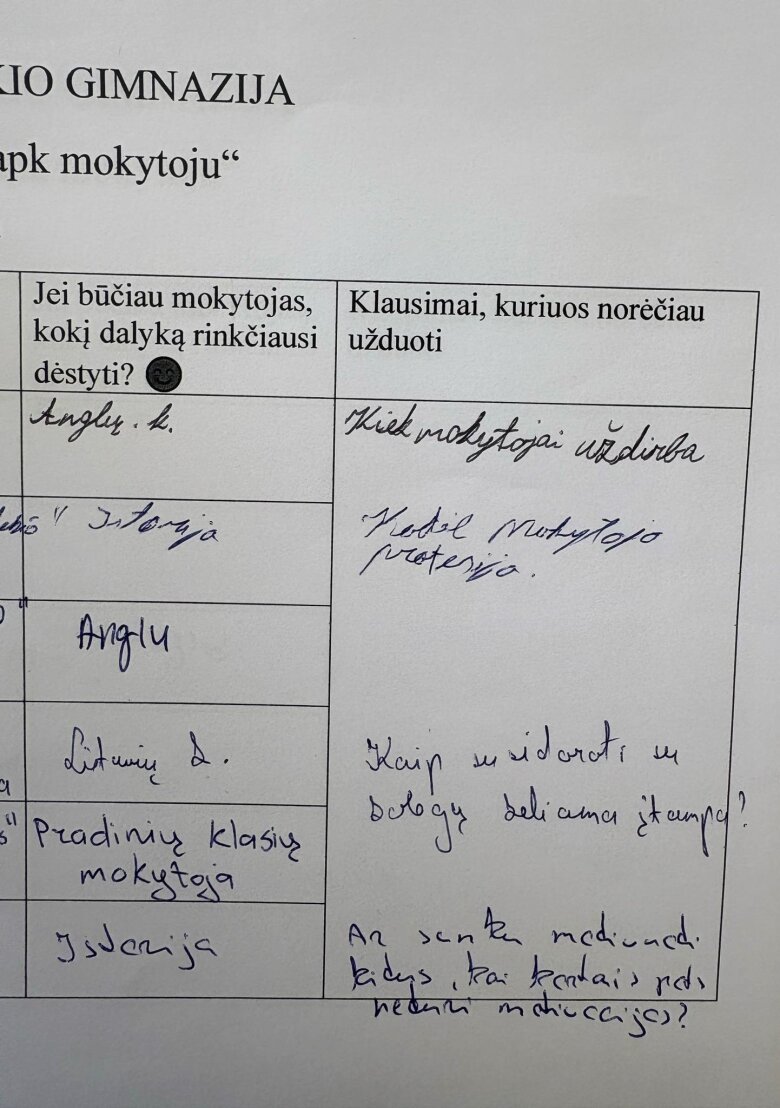 KIO GIMNAZIJA
apk mokytoju“
Jei būčiau mokytojas,
kokį dalyką rinkčiausi
dėstyti?
Klausimai, kuriuos norėčiau
užduoti
Anglų. k.
Kiek mokytojai uždirba
Istorija
Kodėl Mokytojo
profesija.
Anglu
Lituvių k.
Kaip susidoroti su
kolegų keliama įtampa?
Pradinių klasių
mokytoja
Istorija
Ar sunku motivuoti
kitus, kai kartais pats
neturi motivacijos?